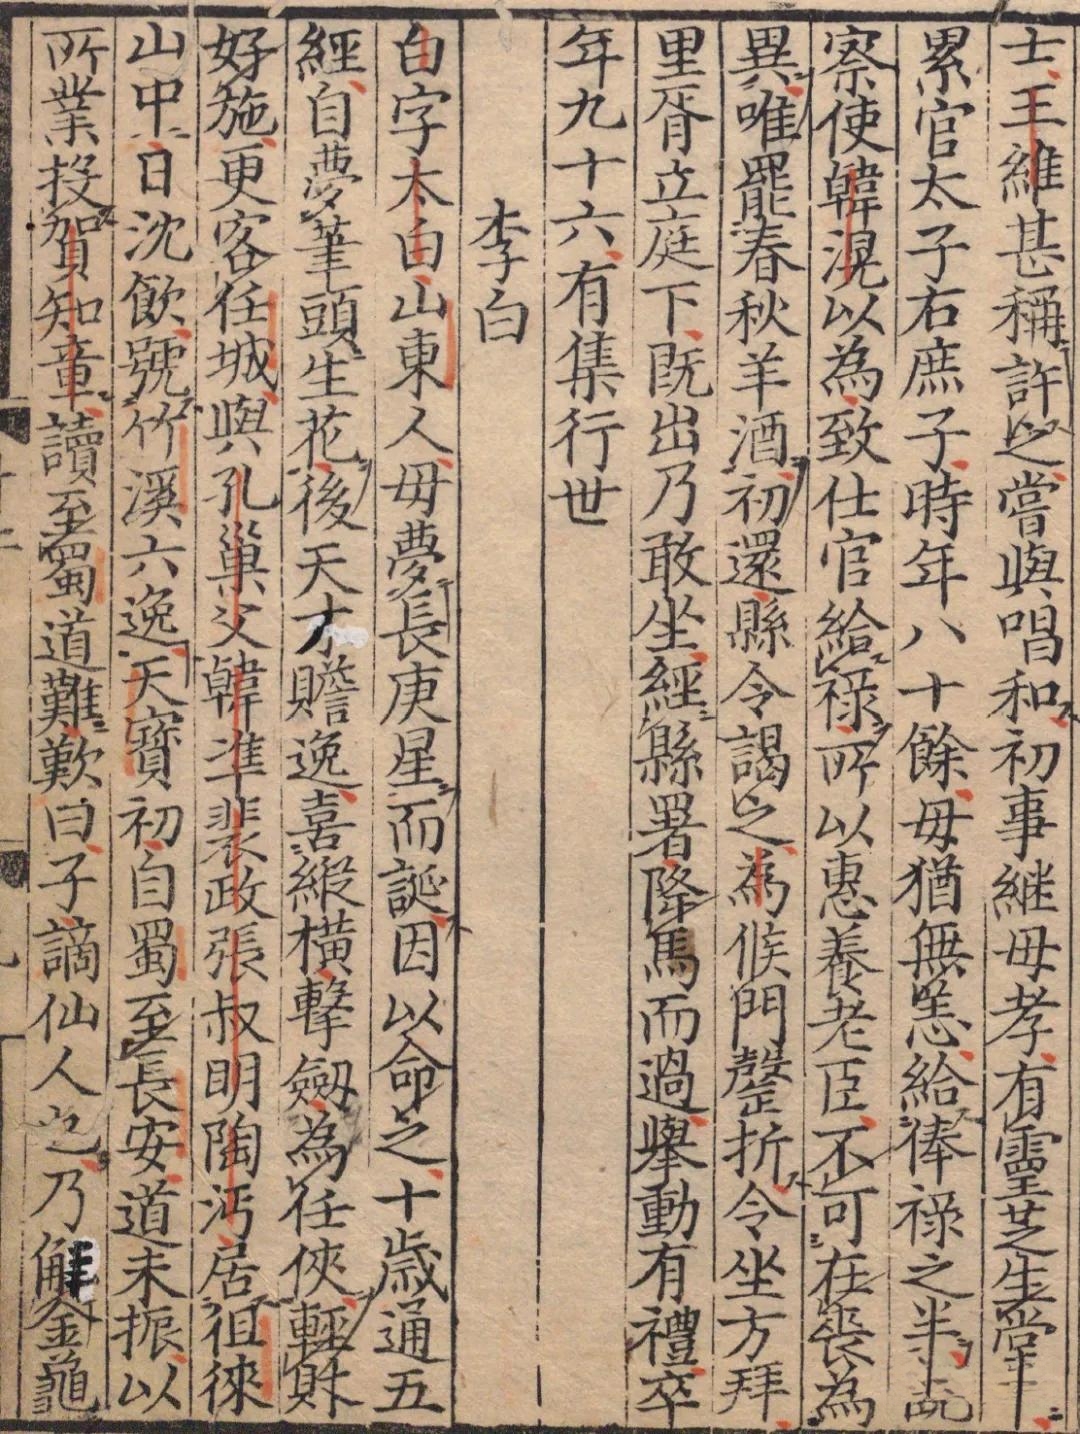 士王維甚稱許之嘗與唱和初事継母孝有靈芝生堂
累官太子右庶子時年八十餘母猶無恙給俸禄之半
察使韓滉以為致仕官給禄所以惠養老臣不可在喪為
異唯罷春秋羊酒初還縣令謁之為候門罄折令坐方拜
里胥立庭下既出乃敢坐經縣署降馬而過舉動有禮卒
年九十六有集行世
李白
白字太白山東人母夢長庚星而誕因以命之十歳通五
經自夢筆頭生花後天才贍逸喜縱横擊劔為任俠輕財
好施更客任城與孔巢父韓準裴政張叔明陶沔居徂徠
山中日沈飲號竹溪六逸天寶初自蜀至長安道未振以
所業投賀知章讀至蜀道難歎曰子謫仙人也乃解金龜